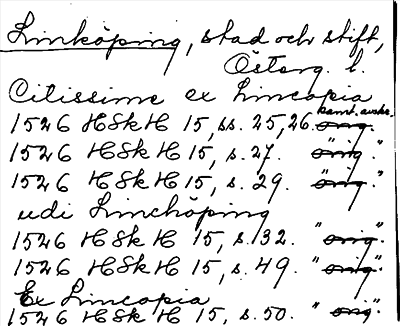 Linköping, stad och stift,
Österg. l.
Citissime ex Lincopia
samt. avskr.
1526 HSkH 15, ss. 25, 26. orig.
1526 HSkH 15, s. 27. orig. "
1526 HSkH 15, s. 29. orig. "
udi Linchöping
1526 HSkH 15, s. 32. " orig. "
1526 HSkH 15, s. 49. " orig. "
Ex Lincopia
1526 HSkH 15, s. 50. " orig. "